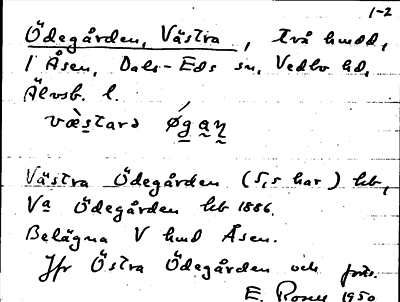 1-2
Ödegården, Västra, två hmdd,
I Åsen, Dals-Eds sn, Vedbo hd,
Älvsb. l.
Västra Ödegården (S,s har) kb,
Va Ödegården kb 1886.
Belägna V hmd Åsen.
Jfr Östra Ödegården och forts.
E. Rosen 1950